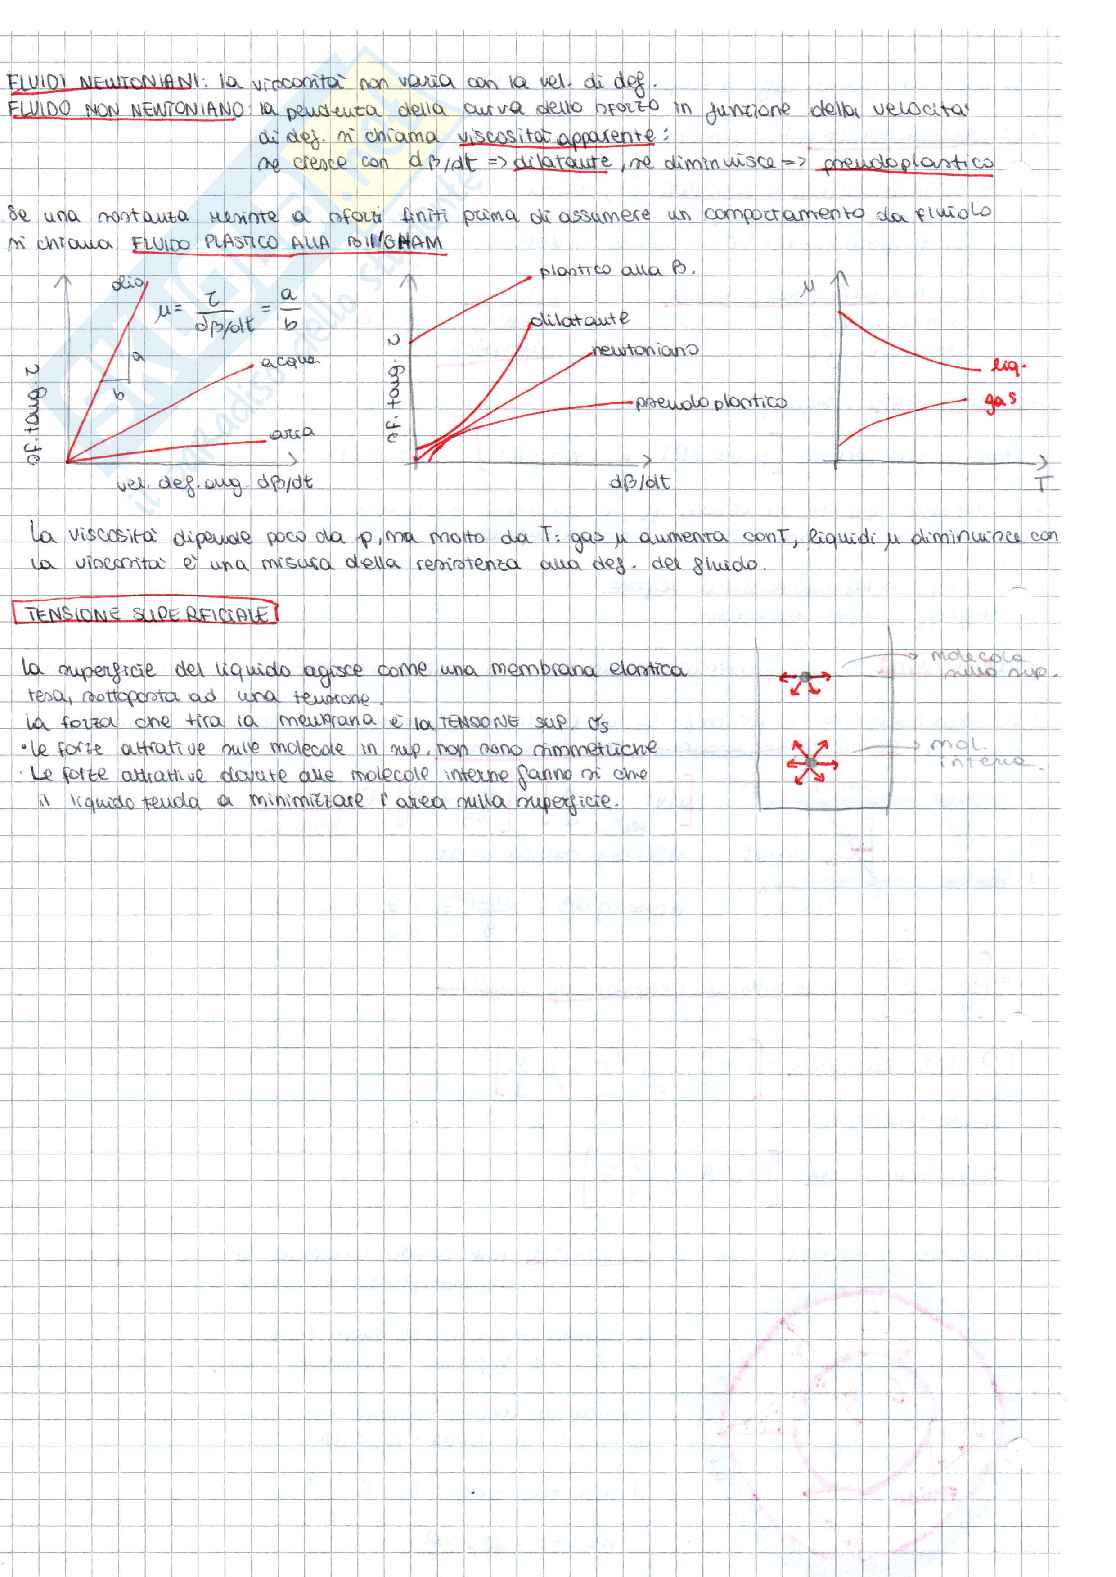 FLUIDI NEWTONIANI: la viscosità non varia con la vel. di def.
FLUIDO NON NEWTONIANO la pendenza della curva dello sforzo in funzione della velocità
di def. si chiama viscosità apparente:
se cresce con dβ/dt => dilatante, se diminuisce => pseudoplastico
Se una sostanza resiste a sforzi finiti prima di assumere un comportamento da fluido
si chiama FLUIDO PLASTICO ALLA BINGHAM
olio
μ = τ / dβ/dt = a / b
a
b
acqua
aria
sf. tang. τ
vel. def. ang. dβ/dt
plastico alla B.
dilatante
newtoniano
pseudoplastico
sf. tang. τ
dβ/dt
μ
liq.
gas
T
la viscosità dipende poco da p, ma molto da T: gas μ aumenta con T, liquidi μ diminuisce con
la viscosità è una misura della resistenza alla def. del fluido.
TENSIONE SUPERFICIALE
la superficie del liquido agisce come una membrana elastica
tesa, sottoposta ad una tensione.
la forza che tira la membrana è la TENSIONE SUP. σs
• le forze attrattive sulle molecole in sup. non sono simmetriche
• Le forze attrattive dovute alle molecole interne fanno sì che
il liquido tenda a minimizzare l'area sulla superficie.
molecola
sulla sup.
mol.
interna.